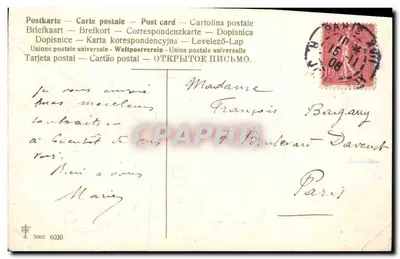 Postkarte - Carte postale - Post card - Cartolina postale
Briefkaart - Brefkort - Correspondenzkarte - Dopisnica
Dopisnice - Karta korespondencyjna - Levelező-Lap
Union postale universelle - Weltpostverein - Union postale universelle
Tarjeta postal - Cartão postal - ОТКРЫТОЕ ПИСЬМО.
Madame
François
Boulevard Davoust
Paris
je vous envoie
mes meilleurs
souhaits
à bientôt de vous
voir.
Bien à vous
PARIS
15 11
08
Serie 6030
CARTE-POSTALE